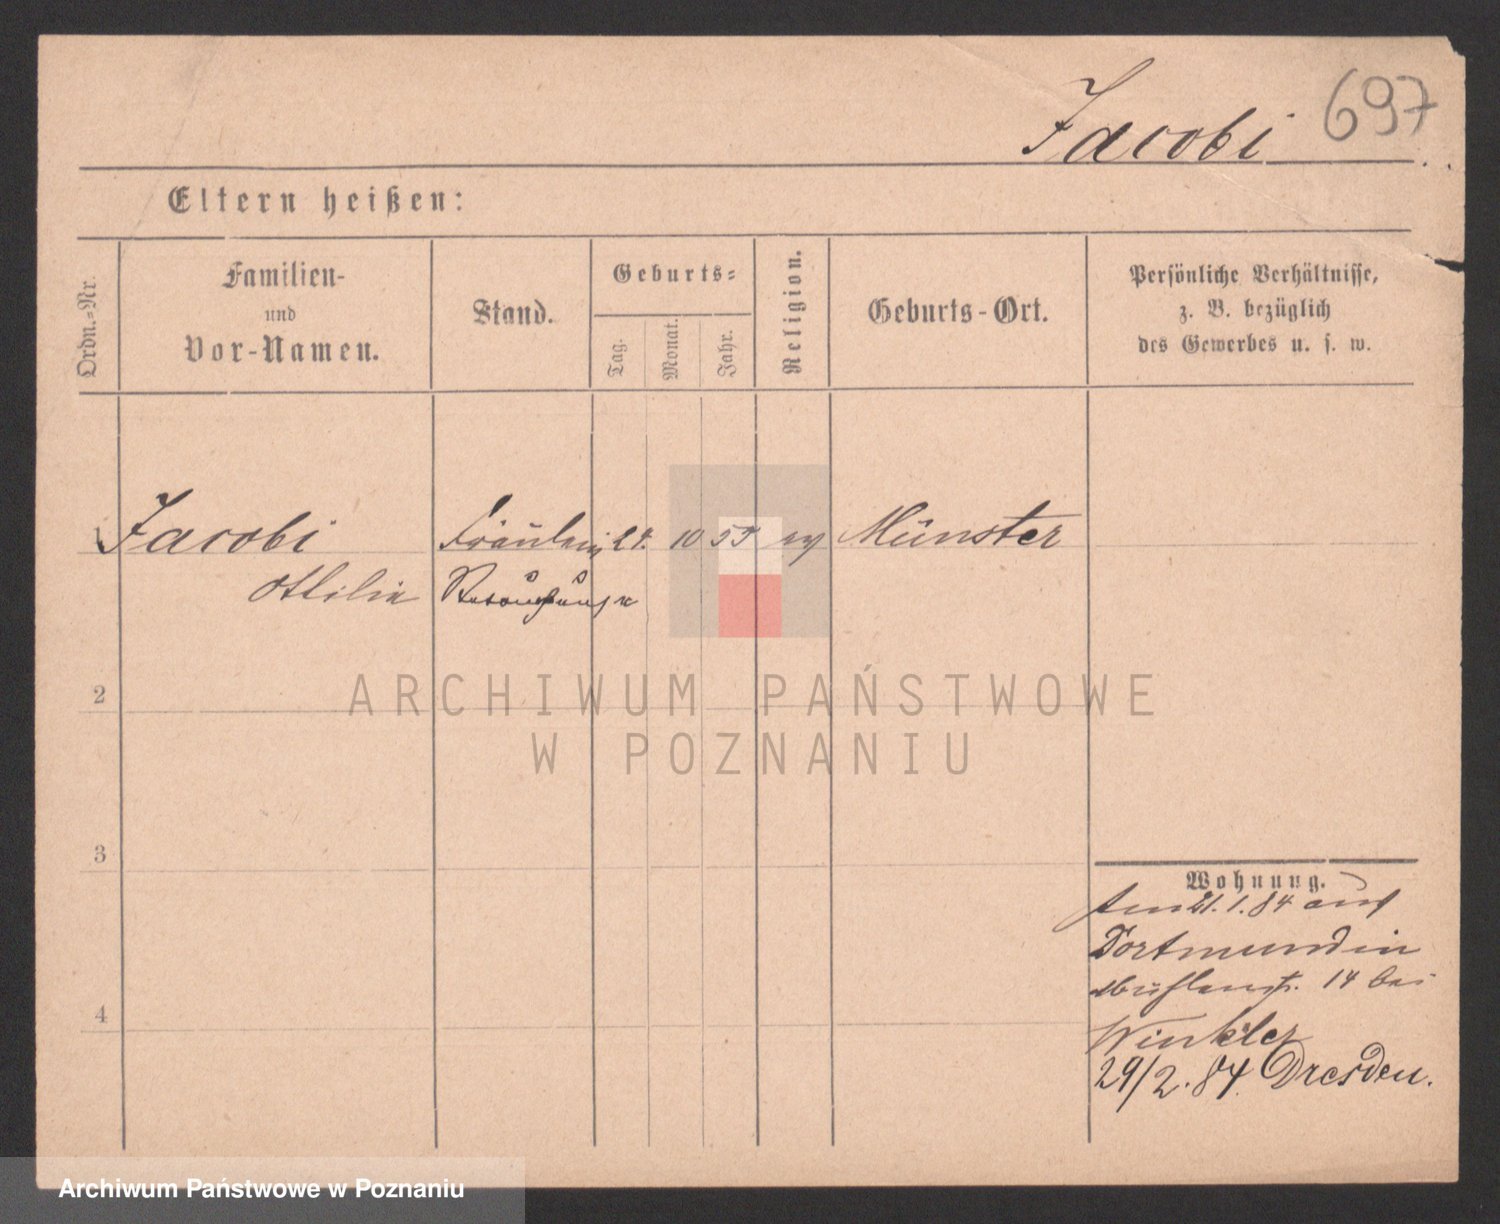 Jacobi 697
Eltern heißen:
Ordn.-Nr.
Familien-
und
Vor-Namen.
Stand.
Geburts-
Tag.
Monat.
Jahr.
Religion.
Geburts-Ort.
Persönliche Verhältnisse,
z. B. bezüglich
des Gewerbes u. s. w.
1 Jacobi Fräulein 24. 10 55 ev Münster
Ottilie
2
ARCHIWUM PAŃSTWOWE
W POZNANIU
3
Wohnung.
Am 21.1.84 aus
Dortmund in
Mühlenstr. 14 bei
4
Winkler
29/2.84. Dresden.
Archiwum Państwowe w Poznaniu